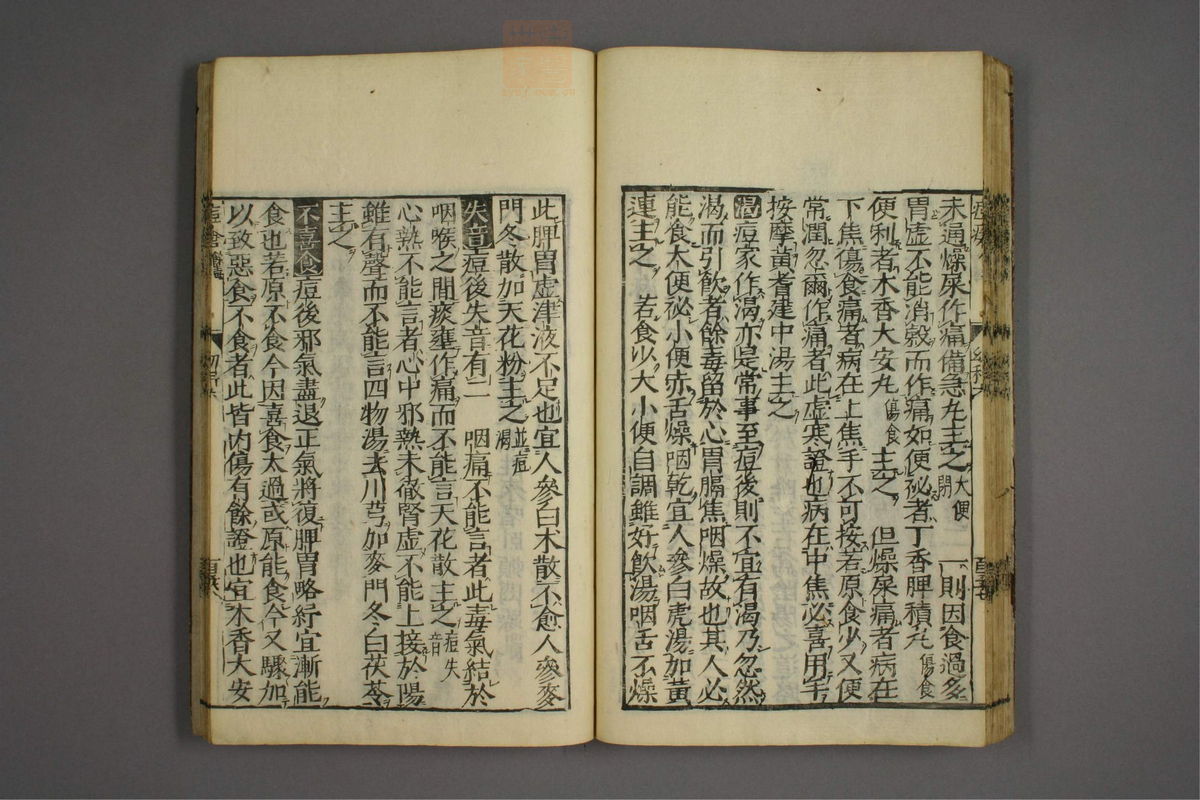 未通燥屎作痛備急丸主之大便閉 一則因食過多
胃虚不能消穀而作痛如便祕者丁香脾積丸傷食
便利者木香大安丸傷食主之 但燥屎痛者病在
下焦傷食痛者病在上焦手不可按若原食少又便
常潤忽爾作痛者此虚寒證也病在中焦必喜用手
按摩黄耆建中湯主之
渴痘家作渴亦是常事至痘後則不宜有渴乃忽然
渴而引飲者餘毒留於心胃膈焦咽燥故也其人必
能食大便祕小便赤舌燥咽乾宜人參白虎湯加黄
連主之 若食以大小便自調雖好飲湯咽舌不燥
此脾胃虚津液不足也宜人參白术散不愈人參麥
門冬散加天花粉主之並痘渴
失音痘後失音有二 咽痛不能言者此毒氣結於
咽喉之間痰壅作痛而不能言天花散主之痘失音
心熱不能言者心中邪熱未徹腎虚不能上接於陽
雖有聲而不能言四物湯去川芎加麥門冬白茯苓
主之
不喜食痘後邪氣盡退正氣將復脾胃略行宜漸能
食也若原不食今因喜食太過或原能食今又驟加
以致惡食不食者此皆内傷有餘證也宜木香大安